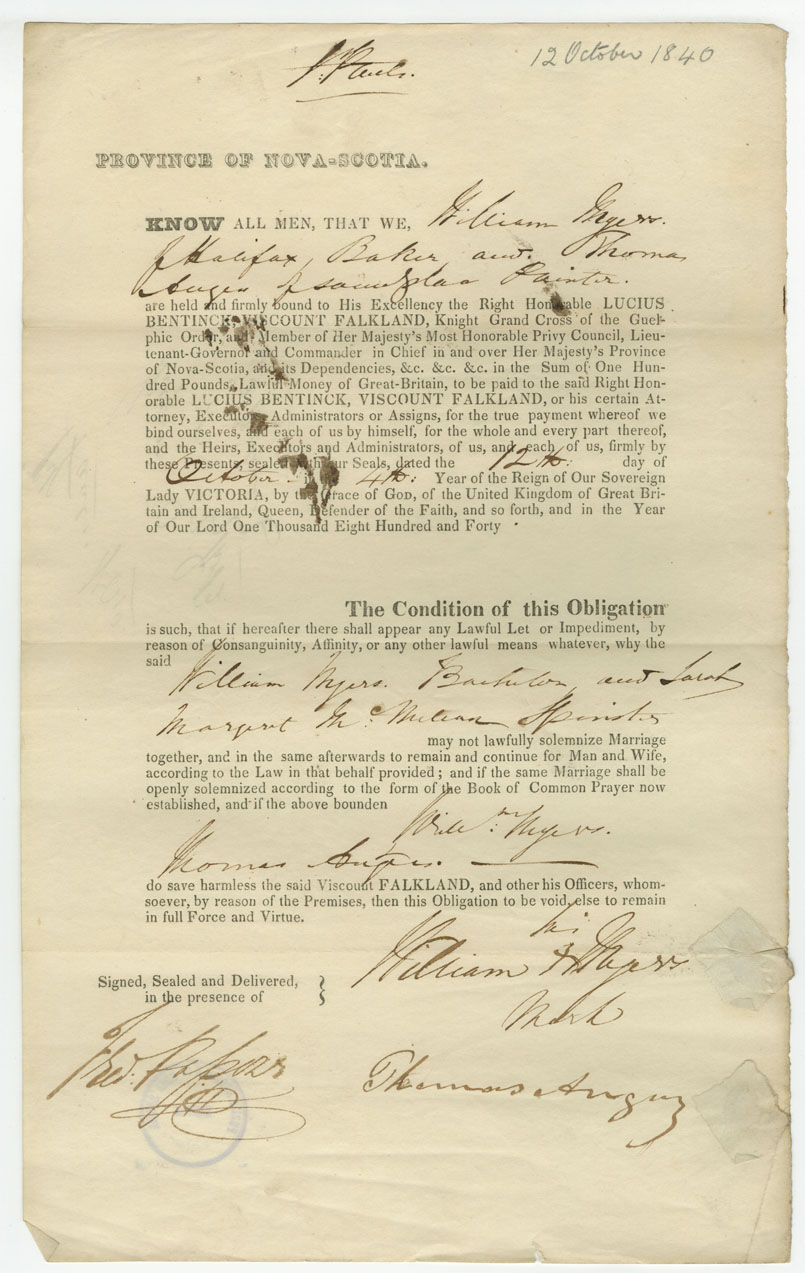 St. Pauls.
12 October 1840
PROVINCE OF NOVA-SCOTIA.
KNOW ALL MEN, THAT WE, William Myers.
of Halifax, Baker, and Thomas
Angus of same place Painter.
are held and firmly bound to His Excellency the Right Honorable LUCIUS
BENTINCK, VISCOUNT FALKLAND, Knight Grand Cross of the Guel-
phic Order, and Member of Her Majesty's Most Honorable Privy Council, Lieu-
tenant-Governor and Commander in Chief in and over Her Majesty's Province
of Nova-Scotia, and its Dependencies, &c. &c. &c. in the Sum of One Hun-
dred Pounds, Lawful Money of Great-Britain, to be paid to the said Right Hon-
orable LUCIUS BENTINCK, VISCOUNT FALKLAND, or his certain At-
torney, Executors, Administrators or Assigns, for the true payment whereof we
bind ourselves, and each of us by himself, for the whole and every part thereof,
and the Heirs, Executors and Administrators, of us, and each of us, firmly by
these Presents, sealed with our Seals, dated the 12th: day of
October in 4th: Year of the Reign of Our Sovereign
Lady VICTORIA, by the Grace of God, of the United Kingdom of Great Bri-
tain and Ireland, Queen, Defender of the Faith, and so forth, and in the Year
of Our Lord One Thousand Eight Hundred and Forty
The Condition of this Obligation
is such, that if hereafter there shall appear any Lawful Let or Impediment, by
reason of Consanguinity, Affinity, or any other lawful means whatever, why the
said
William Myers. Bachelor and Sarah
Margeret Spinster
may not lawfully solemnize Marriage
together, and in the same afterwards to remain and continue for Man and Wife,
according to the Law in that behalf provided; and if the same Marriage shall be
openly solemnized according to the form of the Book of Common Prayer now
established, and if the above bounden
Willm: Myers.
Thomas Angus.
do save harmless the said Viscount FALKLAND, and other his Officers, whom-
soever, by reason of the Premises, then this Obligation to be void, else to remain
in full Force and Virtue.
his
William X Myers
Mark
Signed, Sealed and Delivered,
in the presence of
Fred.
Thomas Angus